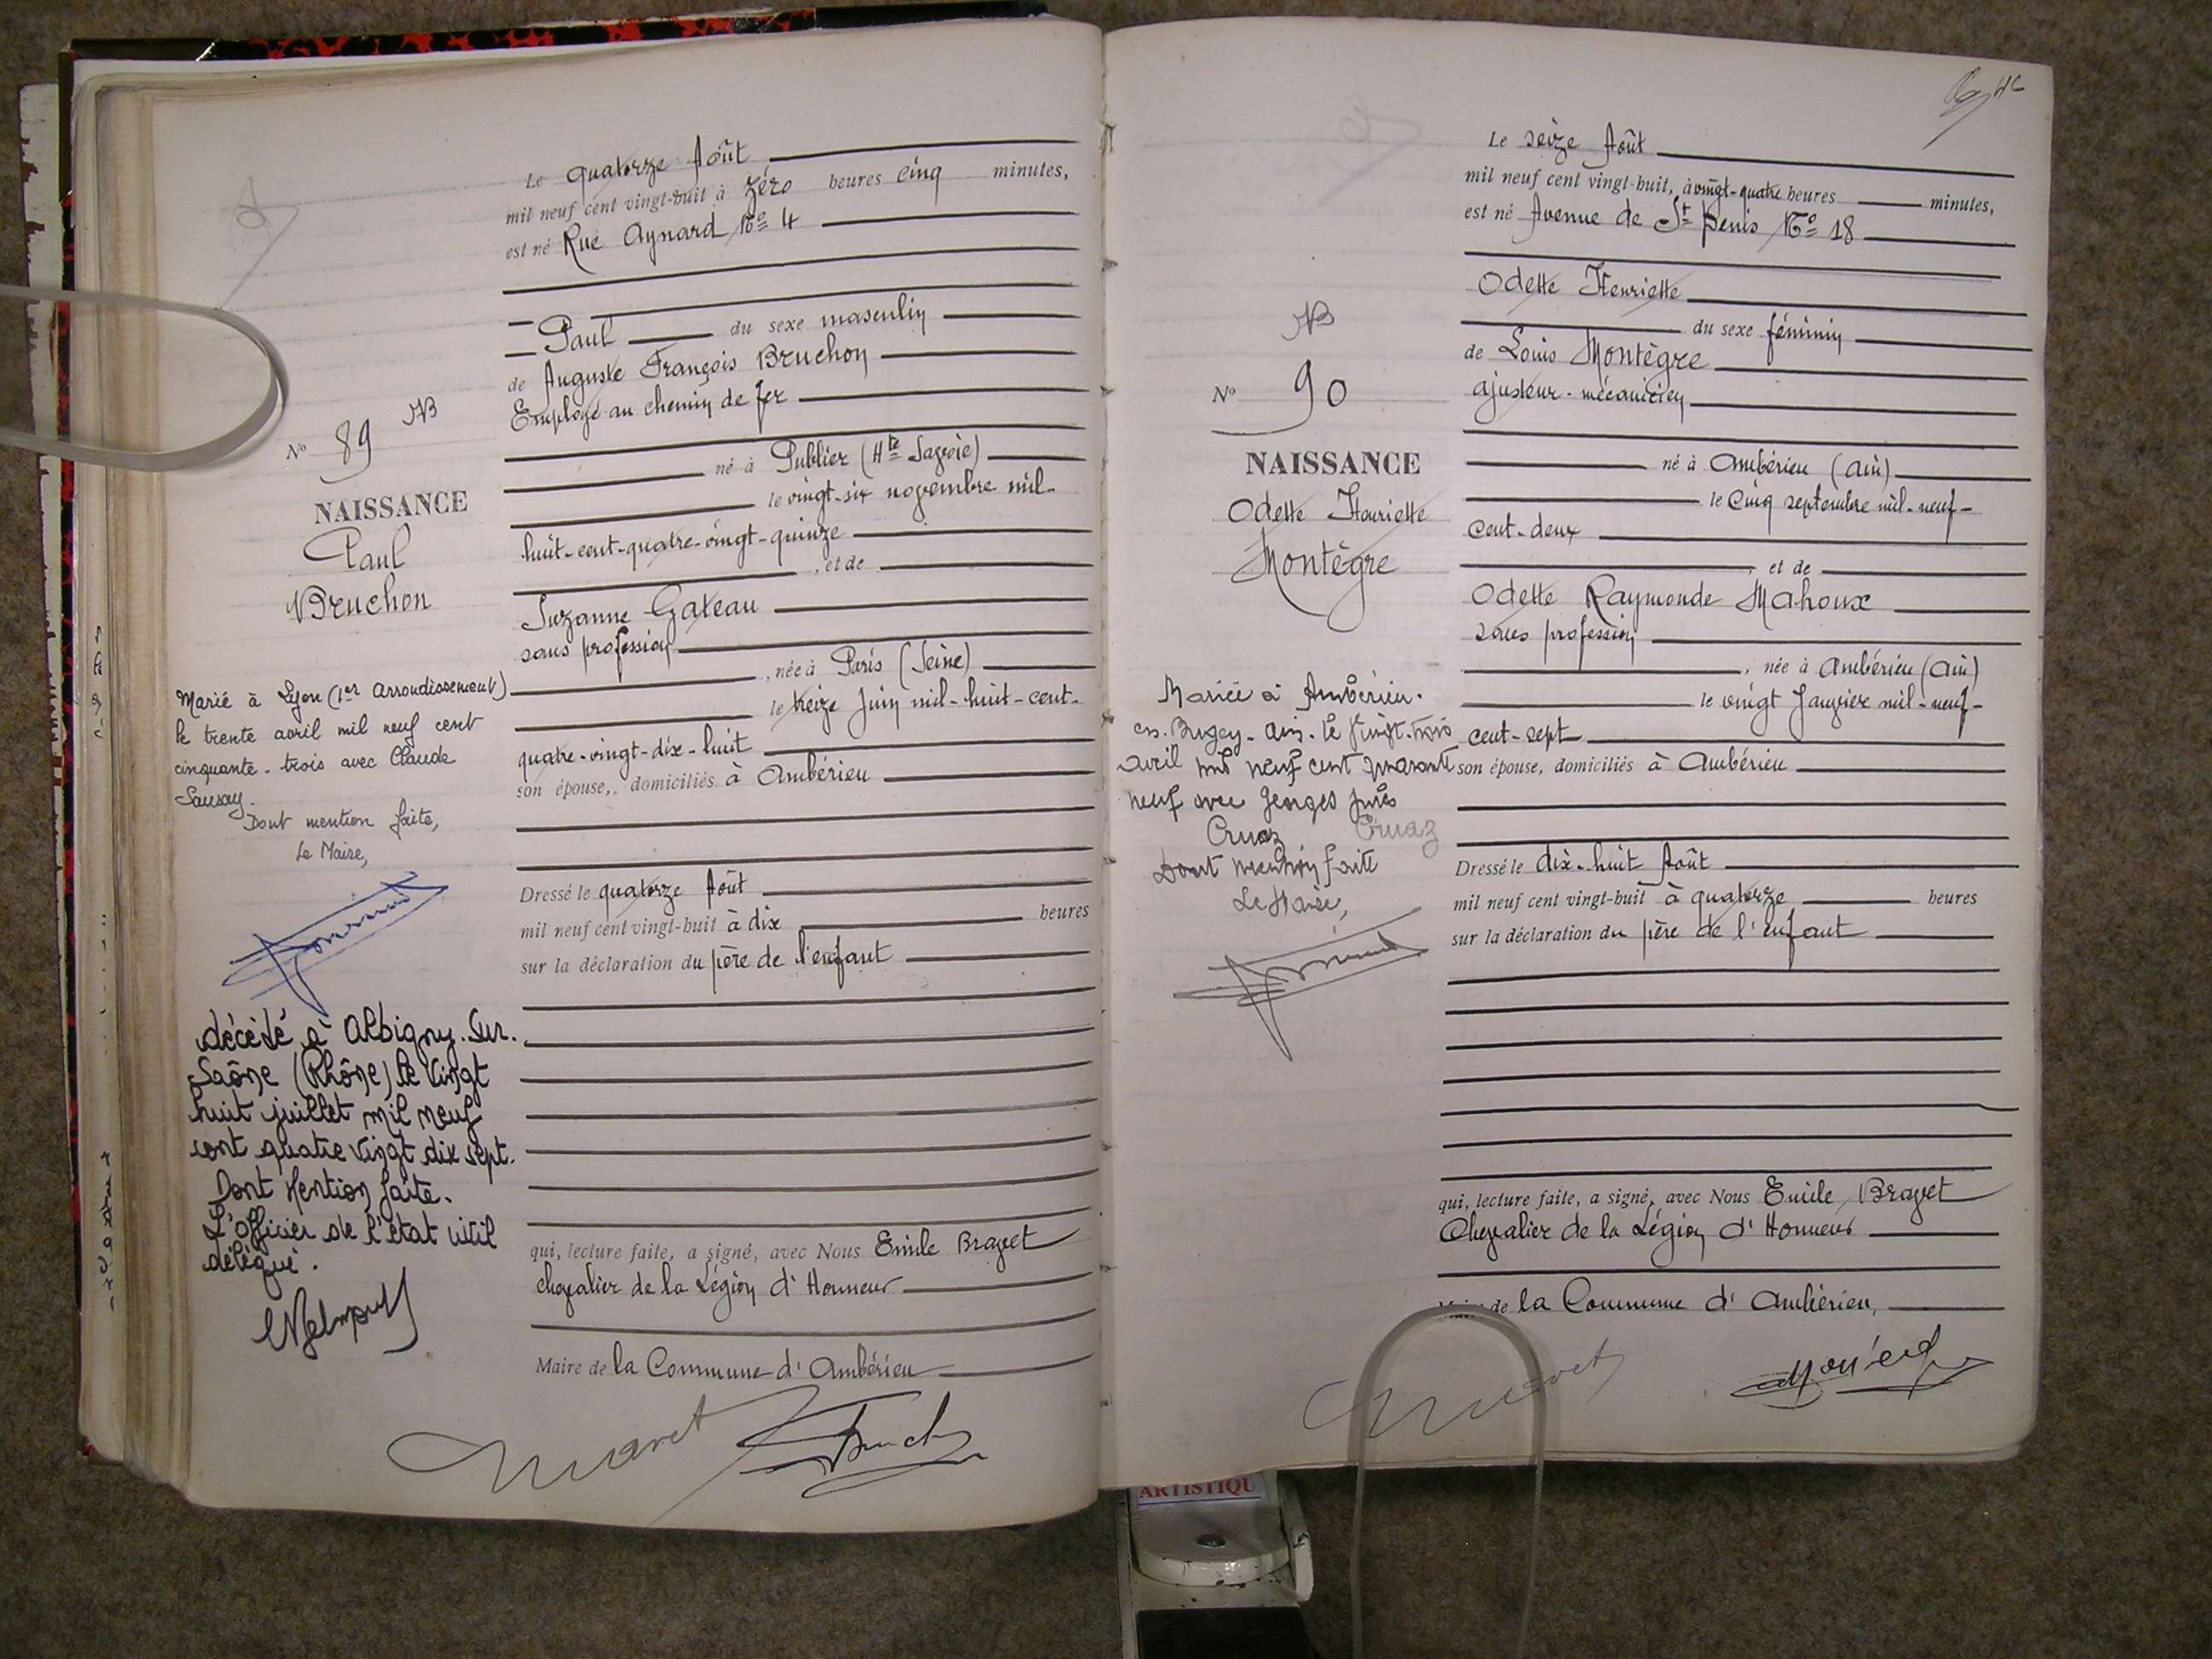 Le quatorze Août
mil neuf cent vingt-huit à zéro heures cinq minutes,
est né Rue Aynard N° 4
Paul du sexe masculin
de Auguste François Bruchon
Employé au chemin de fer
né à Publier (Hte Savoie)
le vingt-six novembre mil-
huit-cent-quatre-vingt-quinze
, et de
Suzanne Gateau
sans profession
, née à Paris (Seine)
le treize Juin mil-huit-cent-
quatre-vingt-dix-huit
son épouse, domiciliés à Ambérieu
Dressé le quatorze Août
mil neuf cent vingt-huit à dix heures
sur la déclaration du père de l'enfant
qui, lecture faite, a signé, avec Nous Emile Bravet
chevalier de la Légion d'Honneur
Maire de la Commune d'Ambérieu
NB
N° 89
NAISSANCE
Paul
Bruchon
Marié à Lyon (1er Arrondissement)
le trente avril mil neuf cent
cinquante-trois avec Claude
Dont mention faite,
Le Maire,
décédé à Albigny-Sur-
Saône (Rhône) le vingt
huit juillet mil neuf
cent quatre vingt dix sept.
Dont Mention faite.
L'officier de l'état civil
délégué.
Bravet
Le seize Août
mil neuf cent vingt-huit, à vingt-quatre heures minutes,
est né Avenue de St Denis N° 18
Odette Henriette
du sexe féminin
de Louis Montègre
ajusteur-mécanicien
né à Ambérieu (Ain)
le Cinq septembre mil-neuf-
cent-deux
, et de
Odette Raymonde Mahoux
sans profession
, née à Ambérieu (Ain)
le vingt Janvier mil-neuf-
cent-sept
son épouse, domiciliés à Ambérieu
Dressé le dix-huit Août
mil neuf cent vingt-huit à quatorze heures
sur la déclaration du père de l'enfant
qui, lecture faite, a signé, avec Nous Emile Bravet
Chevalier de la Légion d'Honneur
Maire de la Commune d'Ambérieu,
NB
N° 90
NAISSANCE
Odette Henriette
Montègre
Mariée à Ambérieu-
en-Bugey-Ain-le vingt-trois
avril mil neuf cent quarante
neuf avec Georges
Cruaz Cruaz
Dont mention faite
Le Maire,
Bravet
ARTISTIQU